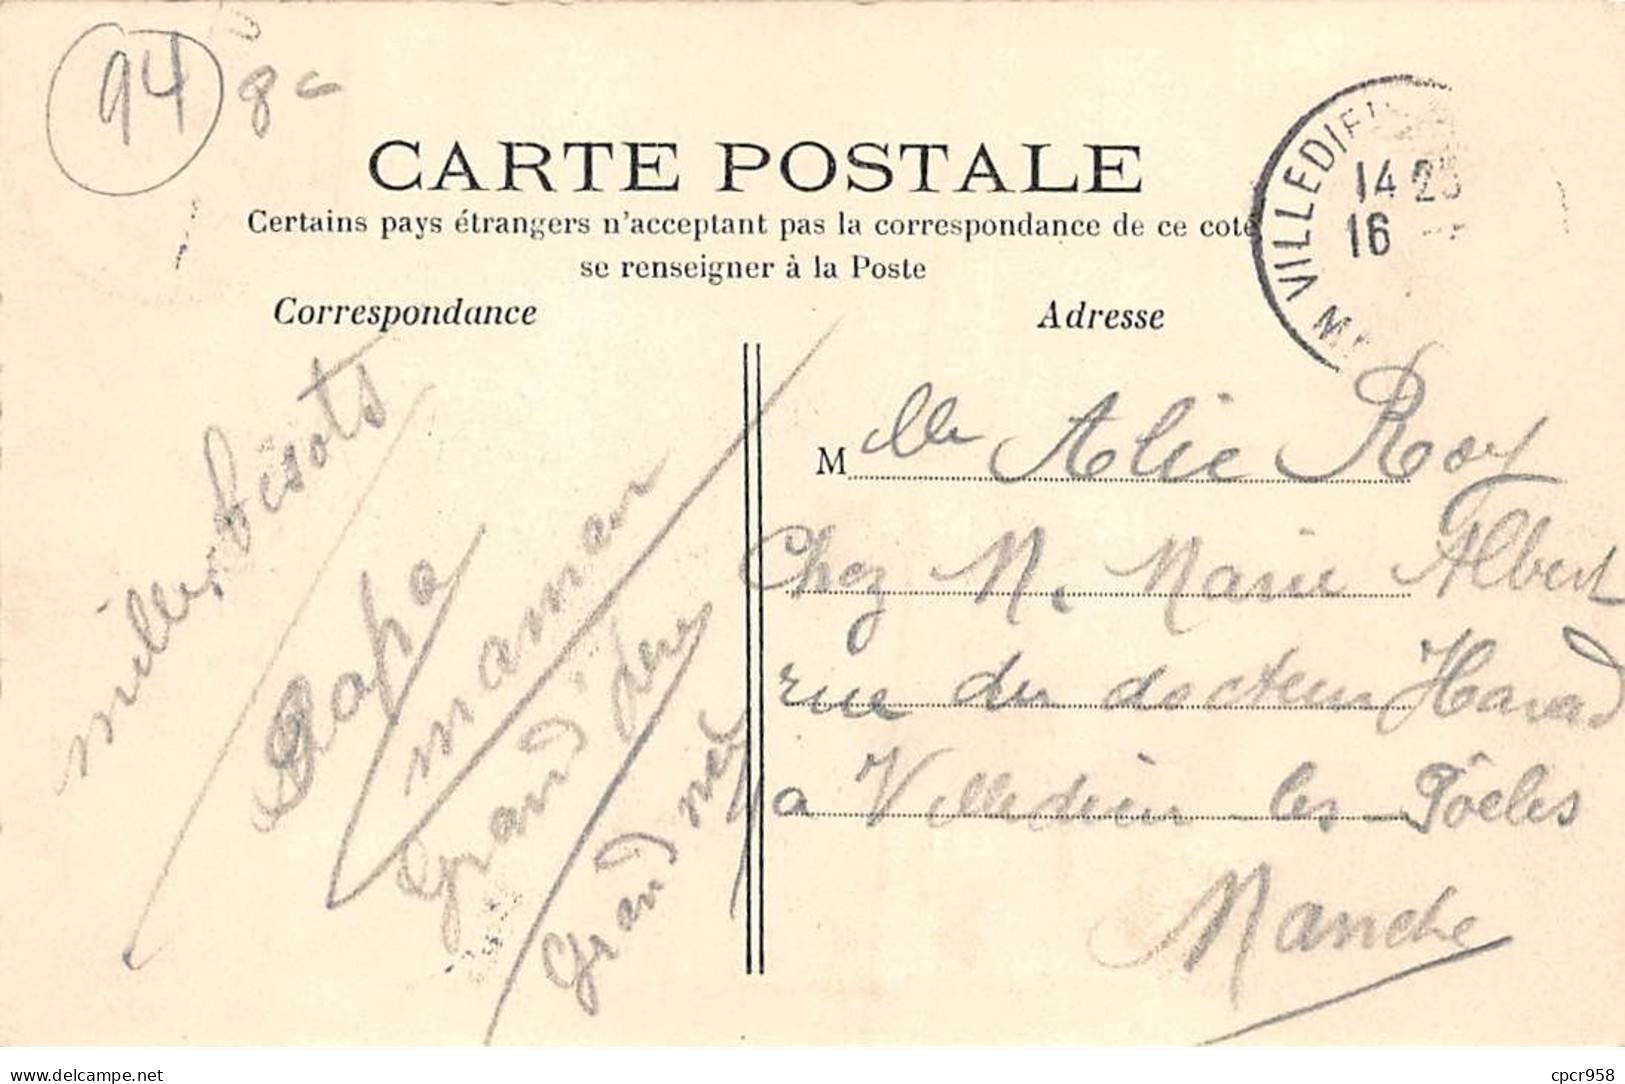 94
8c
CARTE POSTALE
Certains pays étrangers n'acceptant pas la correspondance de ce coté
se renseigner à la Poste
Correspondance
Adresse
VILLEDIE
14 25
16
M
mille bisots
Papa
maman
grand'père
Grand mèr
Mlle Alie Roy
Chez M. Marie Albert
rue du docteur Havard
a Villedieu-les-Pôeles
Manche
www.delcampe.net
cpcr958